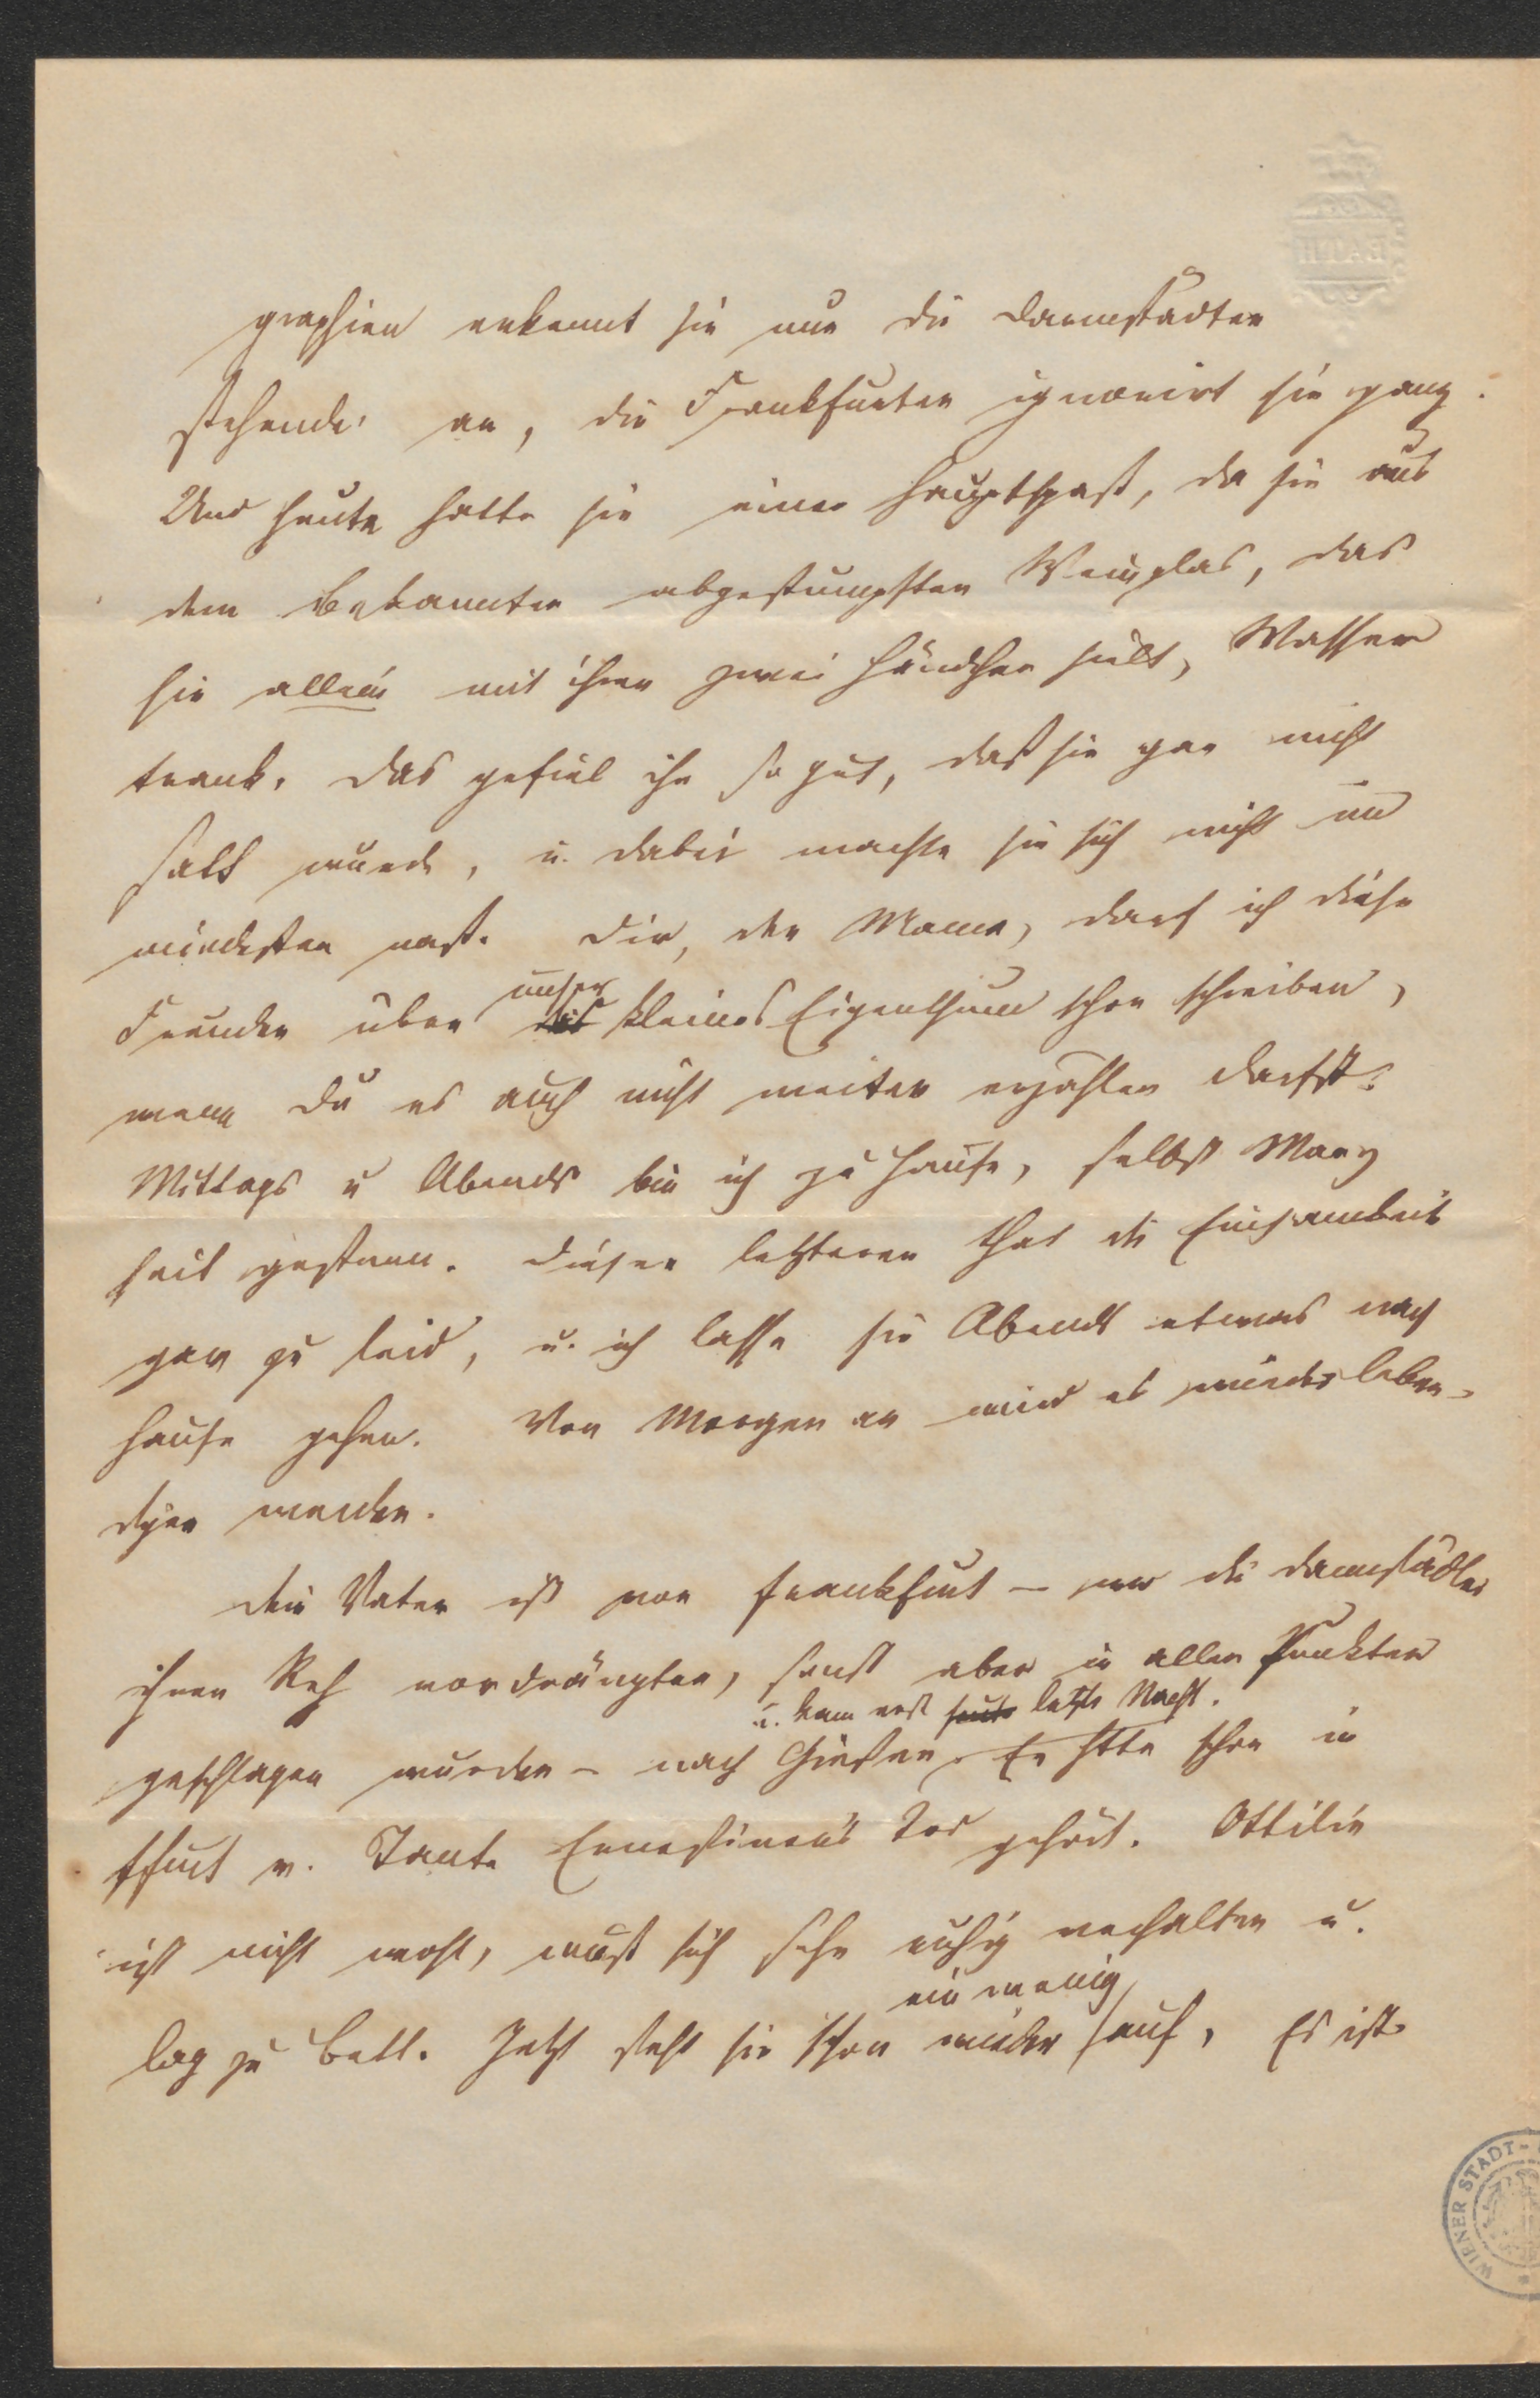 graphien erkennt sie nur die Darmstädter
stehende an, die Frankfurter ignorirt sie ganz.
Und heute hatte sie einen Hauptspaß, da sie aus
dem bekannten abgestumpften Weinglas, das
sie allein mit ihren zwei Händchen hielt, Wasser
trank. Das gefiel ihr so gut, daß sie gar nicht
satt wurde, u. dabei machte sie sich nicht im
mindesten naß. Dir, der Mama, darf ich diese
Freuden über unser kleines Eigenthum schon schreiben,
wenn Du es auch nicht weiter erzählen darfst.
Mittags u Abends bin ich zu Hause, selbst Mary
seit gestern. Dieser letzteren that die Einsamkeit
gar zu leid, u. ich lasse sie Abends etwas nach
Hause gehen. Von Morgen an wird es wieder leben-
diger werden.
Dein Vater ist von Frankfurt – wo die Darmstädter
ihren Reh vordrängten, sonst aber in allen Punkten
u. kam erst heute letzte Nacht.
geschlagen wurden – nach Gießen. Er hatte schon in
Ffurt v. Tante Ernestinen's Tod gehört. Ottilie
ist nicht wohl, muß sich sehr ruhig verhalten u.
ein wenig
lag zu Bett. Jetzt steht sie schon wieder auf, Es ist
WIENER STADT-
BATH